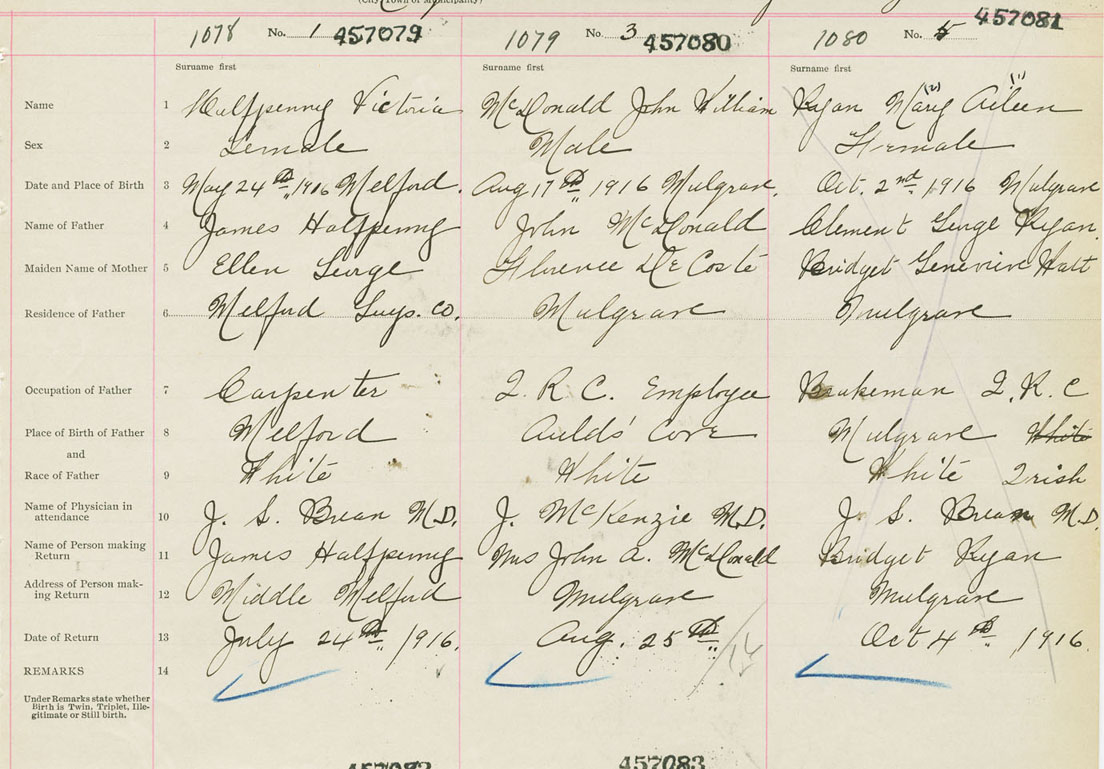 (City Town or Municipality)
1078 No. 1 457079 1079 No. 3 457080 1080 No. 5 457081
Surname first Surname first Surname first
Name 1 Halfpenny Victoria McDonald John William Ryan (2) Mary (1) Aileen
Sex 2 Female Male Female
Date and Place of Birth 3 May 24th 1916 Melford. Aug 17th 1916 Mulgrave. Oct. 2nd 1916 Mulgrave
Name of Father 4 James Halfpenny John McDonald Clement George Ryan.
Maiden Name of Mother 5 Ellen George Florence DeCoste Bridget Genevieve Hatt
Residence of Father 6 Melford Guys. Co. Mulgrave Mulgrave
Occupation of Father 7 Carpenter I. R. C. Employee Brakeman I. R. C
Place of Birth of Father 8 Melford Aulds' Cove Mulgrave White
and
Race of Father 9 White White White Irish
Name of Physician in
attendance 10 J. S. Brean M.D. J. McKenzie M.D. J. S. Brean M.D.
Name of Person making
Return 11 James Halfpenny Mrs John A. McDonald Bridget Ryan
Address of Person mak-
ing Return 12 Middle Melford Mulgrave Mulgrave
Date of Return 13 July 24th 1916. Aug. 25th Oct 4th 1916
REMARKS 14
Under Remarks state whether
Birth is Twin, Triplet, Ille-
gitimate or Still birth.
457083